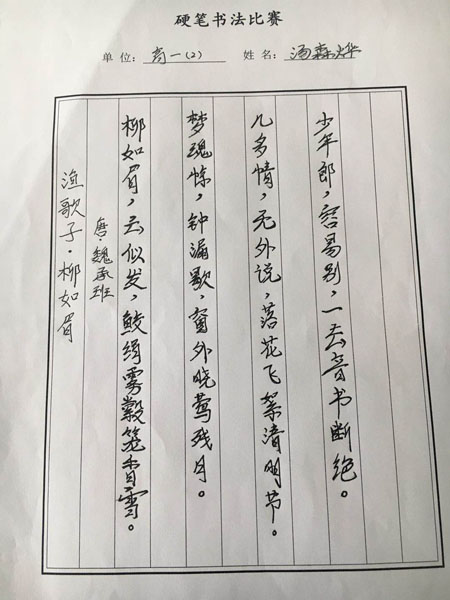 硬笔书法比赛
单位: 高一(2) 姓名: 汤森烨
渔歌子·柳如眉
唐·魏承班
柳如眉,云似发,鲛绡雾縠笼香雪。
梦魂惊,钟漏歇,窗外晓莺残月。
几多情,无处说,落花飞絮清明节。
少年郎,容易别,一去音书断绝。